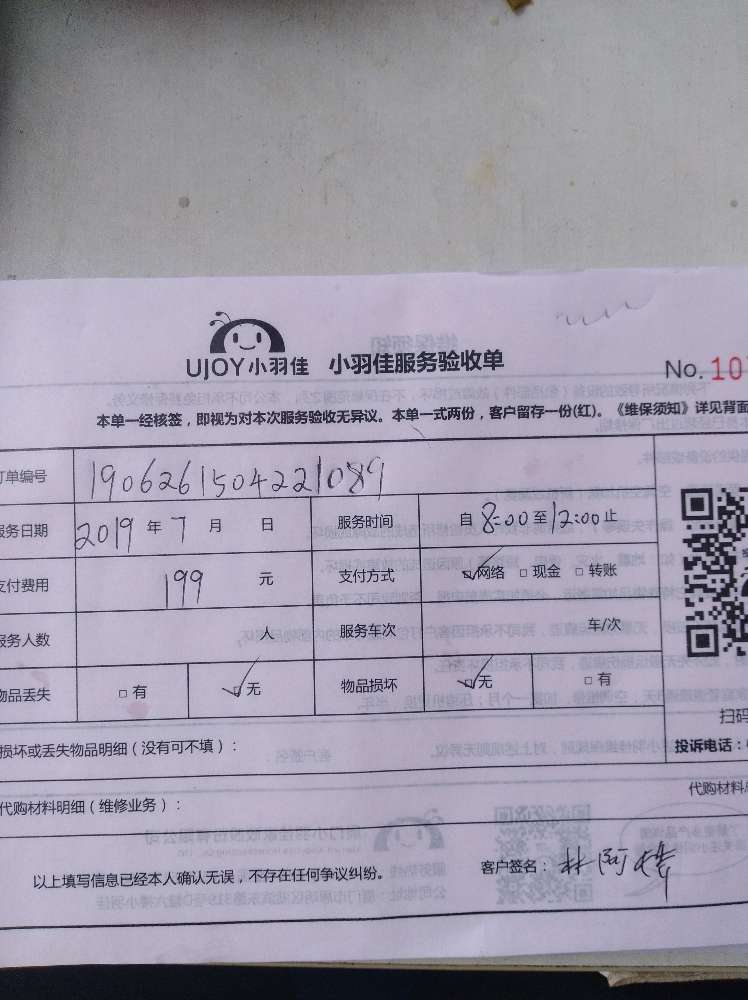 UJOY小羽佳 小羽佳服务验收单
No. 10
本单一经核签，即视为对本次服务验收无异议。本单一式两份，客户留存一份(红)。《维保须知》详见背面
订单编号 1906261504221089
服务日期 2019 年 7 月 日 服务时间 自 8:00 至 12:00 止
支付费用 199 元 支付方式 ☑网络 □ 现金 □ 转账
服务人数 人 服务车次 车/次
物品丢失 □ 有 ☑无 物品损坏 ☑无 □ 有
扫码
损坏或丢失物品明细（没有可不填）：
投诉电话：
代购材料明细（维修业务）：
代购材料
以上填写信息已经本人确认无误，不存在任何争议纠纷。
客户签名：林阿